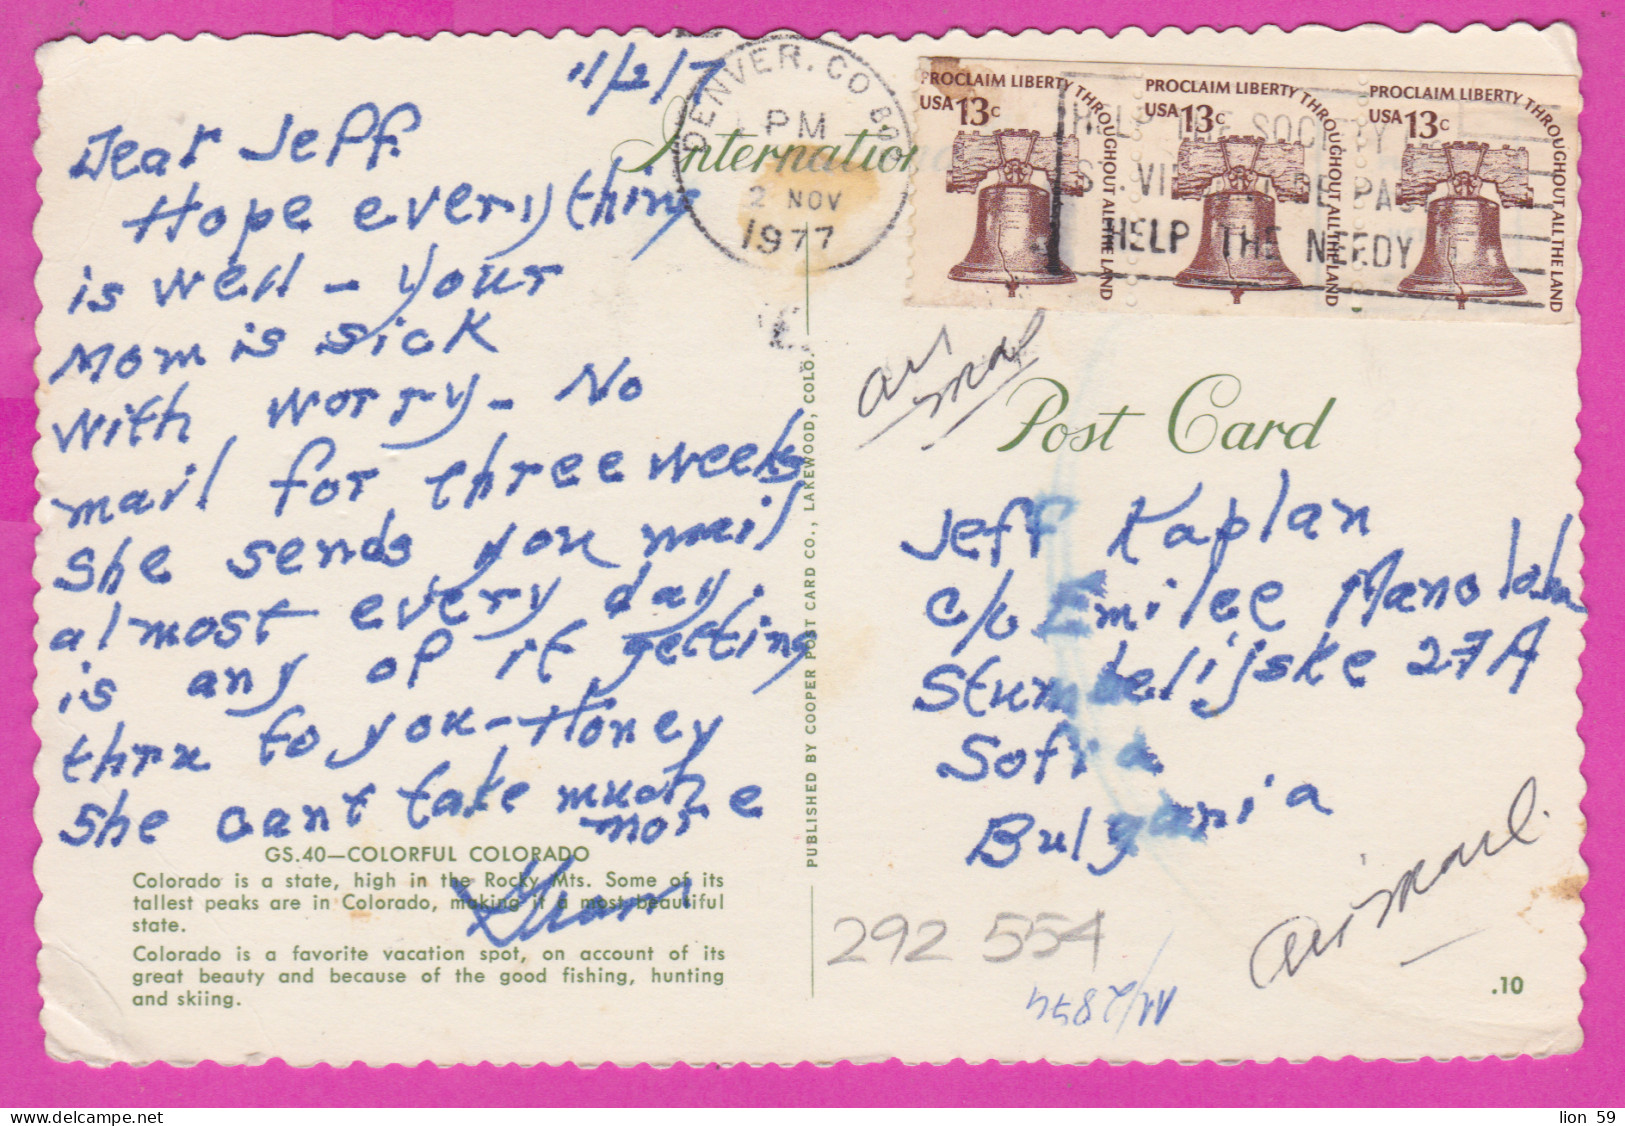 11/2/7
Dear Jeff.
Hope everything
is well - your
Mom is sick
with worry - No
mail for three weeks
She sends you mail
almost every day.
is any of it getting
thru to you - Honey
She cant take much
more
GS.40—COLORFUL COLORADO
Colorado is a state, high in the Rocky Mts. Some of its
tallest peaks are in Colorado, making it a most beautiful
state.
Colorado is a favorite vacation spot, on account of its
great beauty and because of the good fishing, hunting
and skiing.
PUBLISHED BY COOPER POST CARD CO., LAKEWOOD, COLO.
International
DENVER, CO 80
PM
2 NOV
1977
HELP THE SOCIETY
ST. VINCENT DE PAUL
HELP THE NEEDY
PROCLAIM LIBERTY THROUGHOUT ALL THE LAND
USA 13c
PROCLAIM LIBERTY THROUGHOUT ALL THE LAND
USA 13c
PROCLAIM LIBERTY THROUGHOUT ALL THE LAND
USA 13c
air
mail
Post Card
Jeff Kaplan
c/o Emilee Manolova
Stumbelijske 27A
Sofia
Bulgaria
air mail.
292 554
.10
lion 59